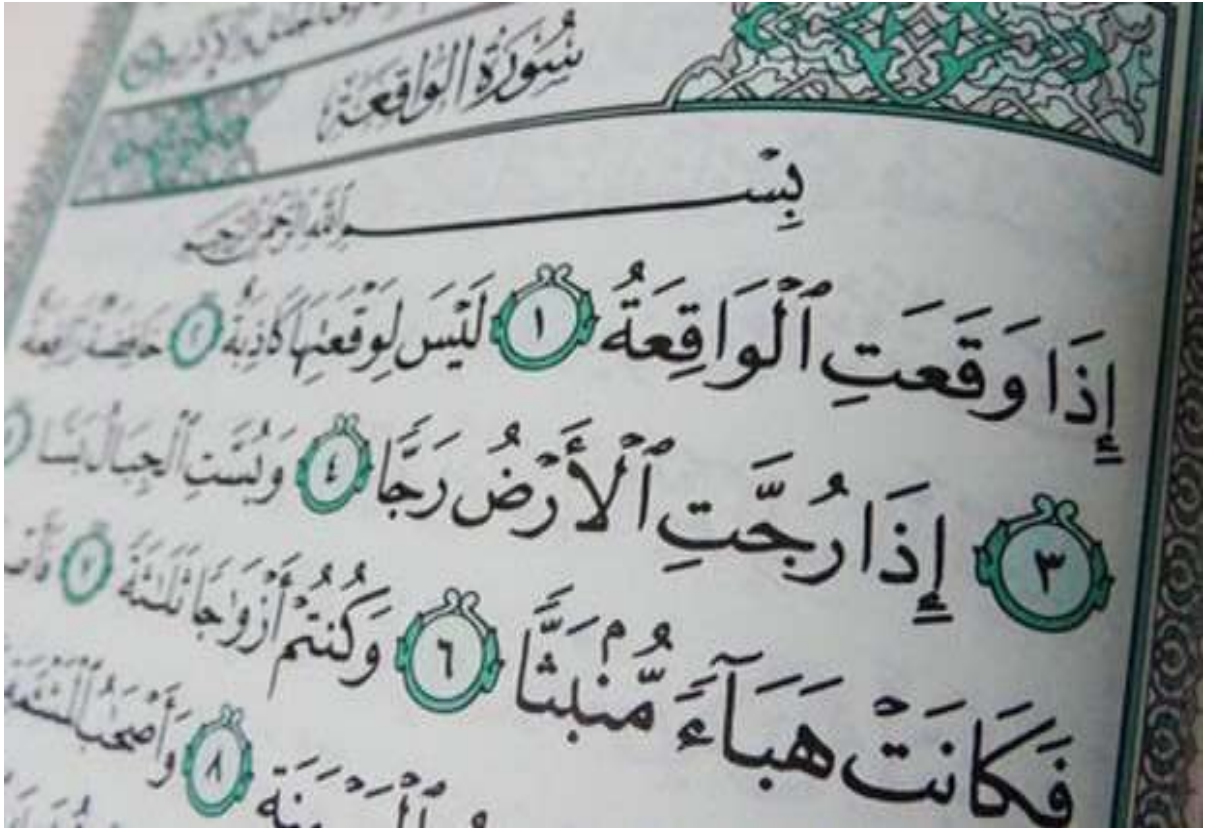 سُورَةُ الوَاقِعَةِ
بِسْمِ اللَّهِ الرَّحْمَٰنِ الرَّحِيمِ
إِذَا وَقَعَتِ ٱلْوَاقِعَةُ ١ لَيْسَ لِوَقْعَتِهَا كَاذِبَةٌ ٢ خَافِضَةٌ رَّافِعَةٌ
٣ إِذَا رُجَّتِ ٱلْأَرْضُ رَجًّا ٤ وَبُسَّتِ ٱلْجِبَالُ بَسًّا
فَكَانَتْ هَبَآءً مُّنۢبَثًّا ٦ وَكُنتُمْ أَزْوَٰجًا ثَلَٰثَةً ٧
ٱلْمَيْمَنَةِ ٨ وَأَصْحَٰبُ ٱلْمَشْـَٔمَةِ